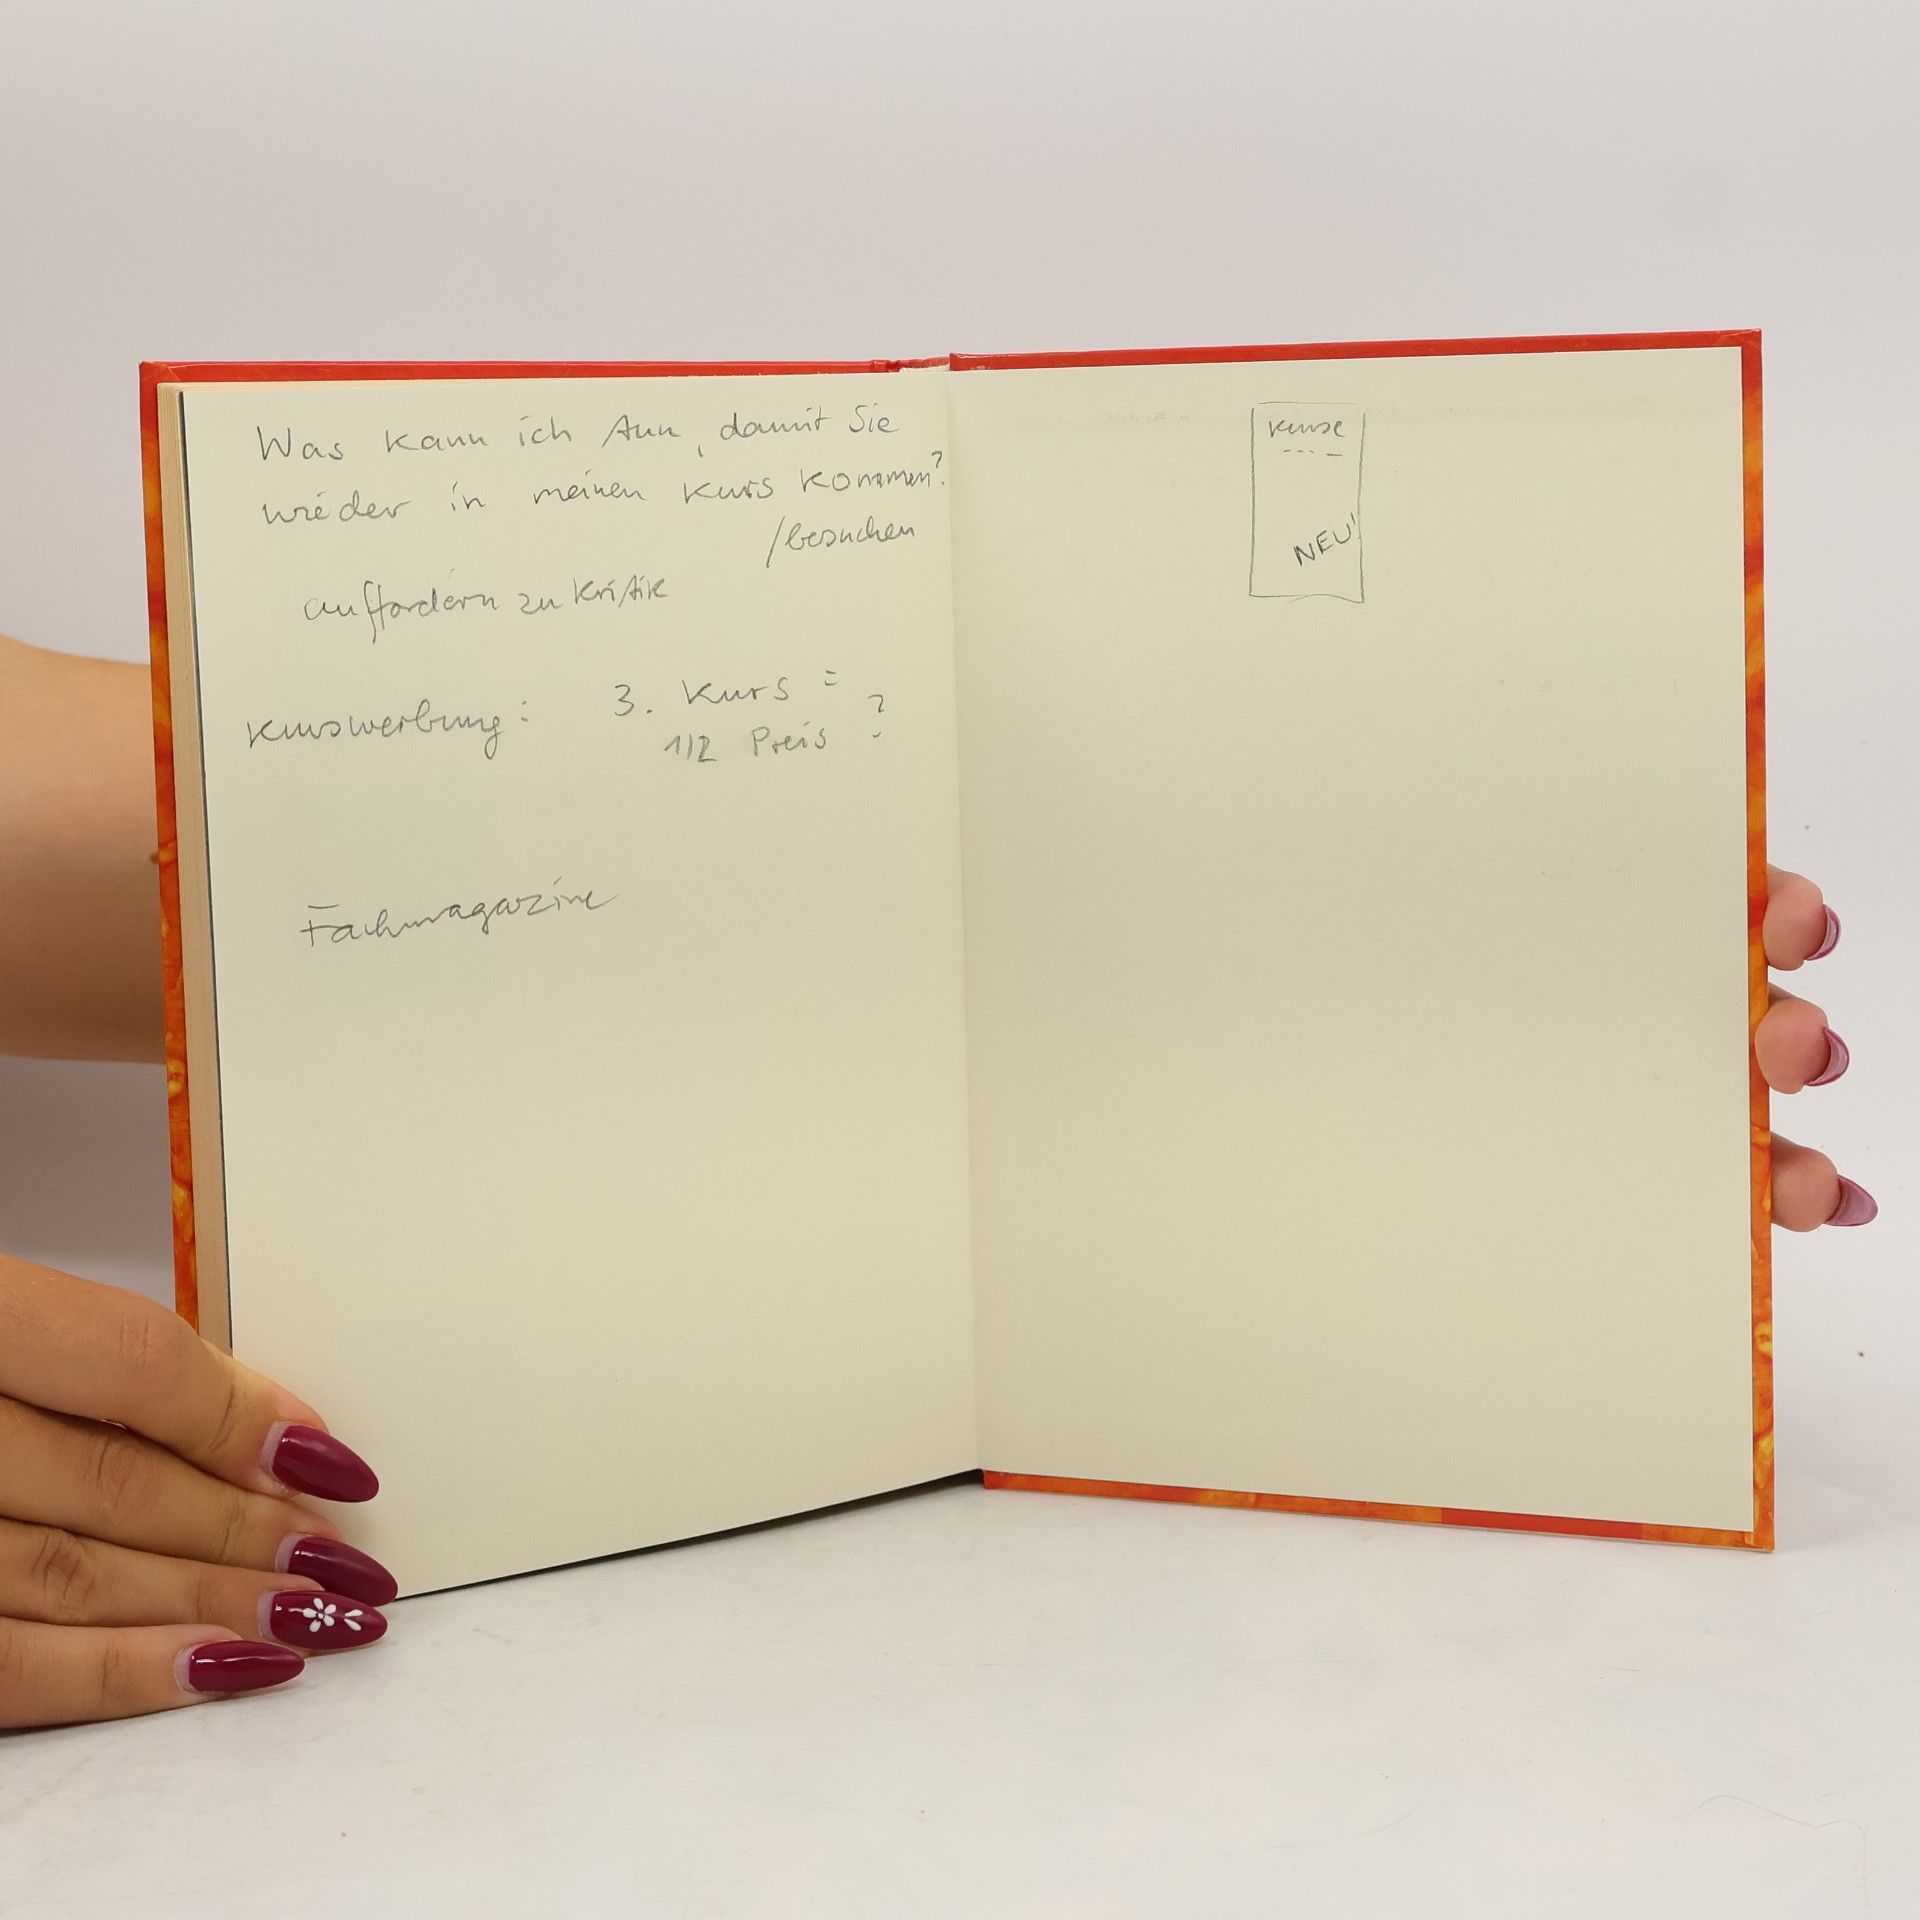 Was kann ich tun, damit Sie
wieder in meinen Kurs kommen?
/besuchen
auffordern zu Kritik
Kurswerbung: 3. Kurs =
1/2 Preis ?
Fachmagazine
Kurse
NEU!